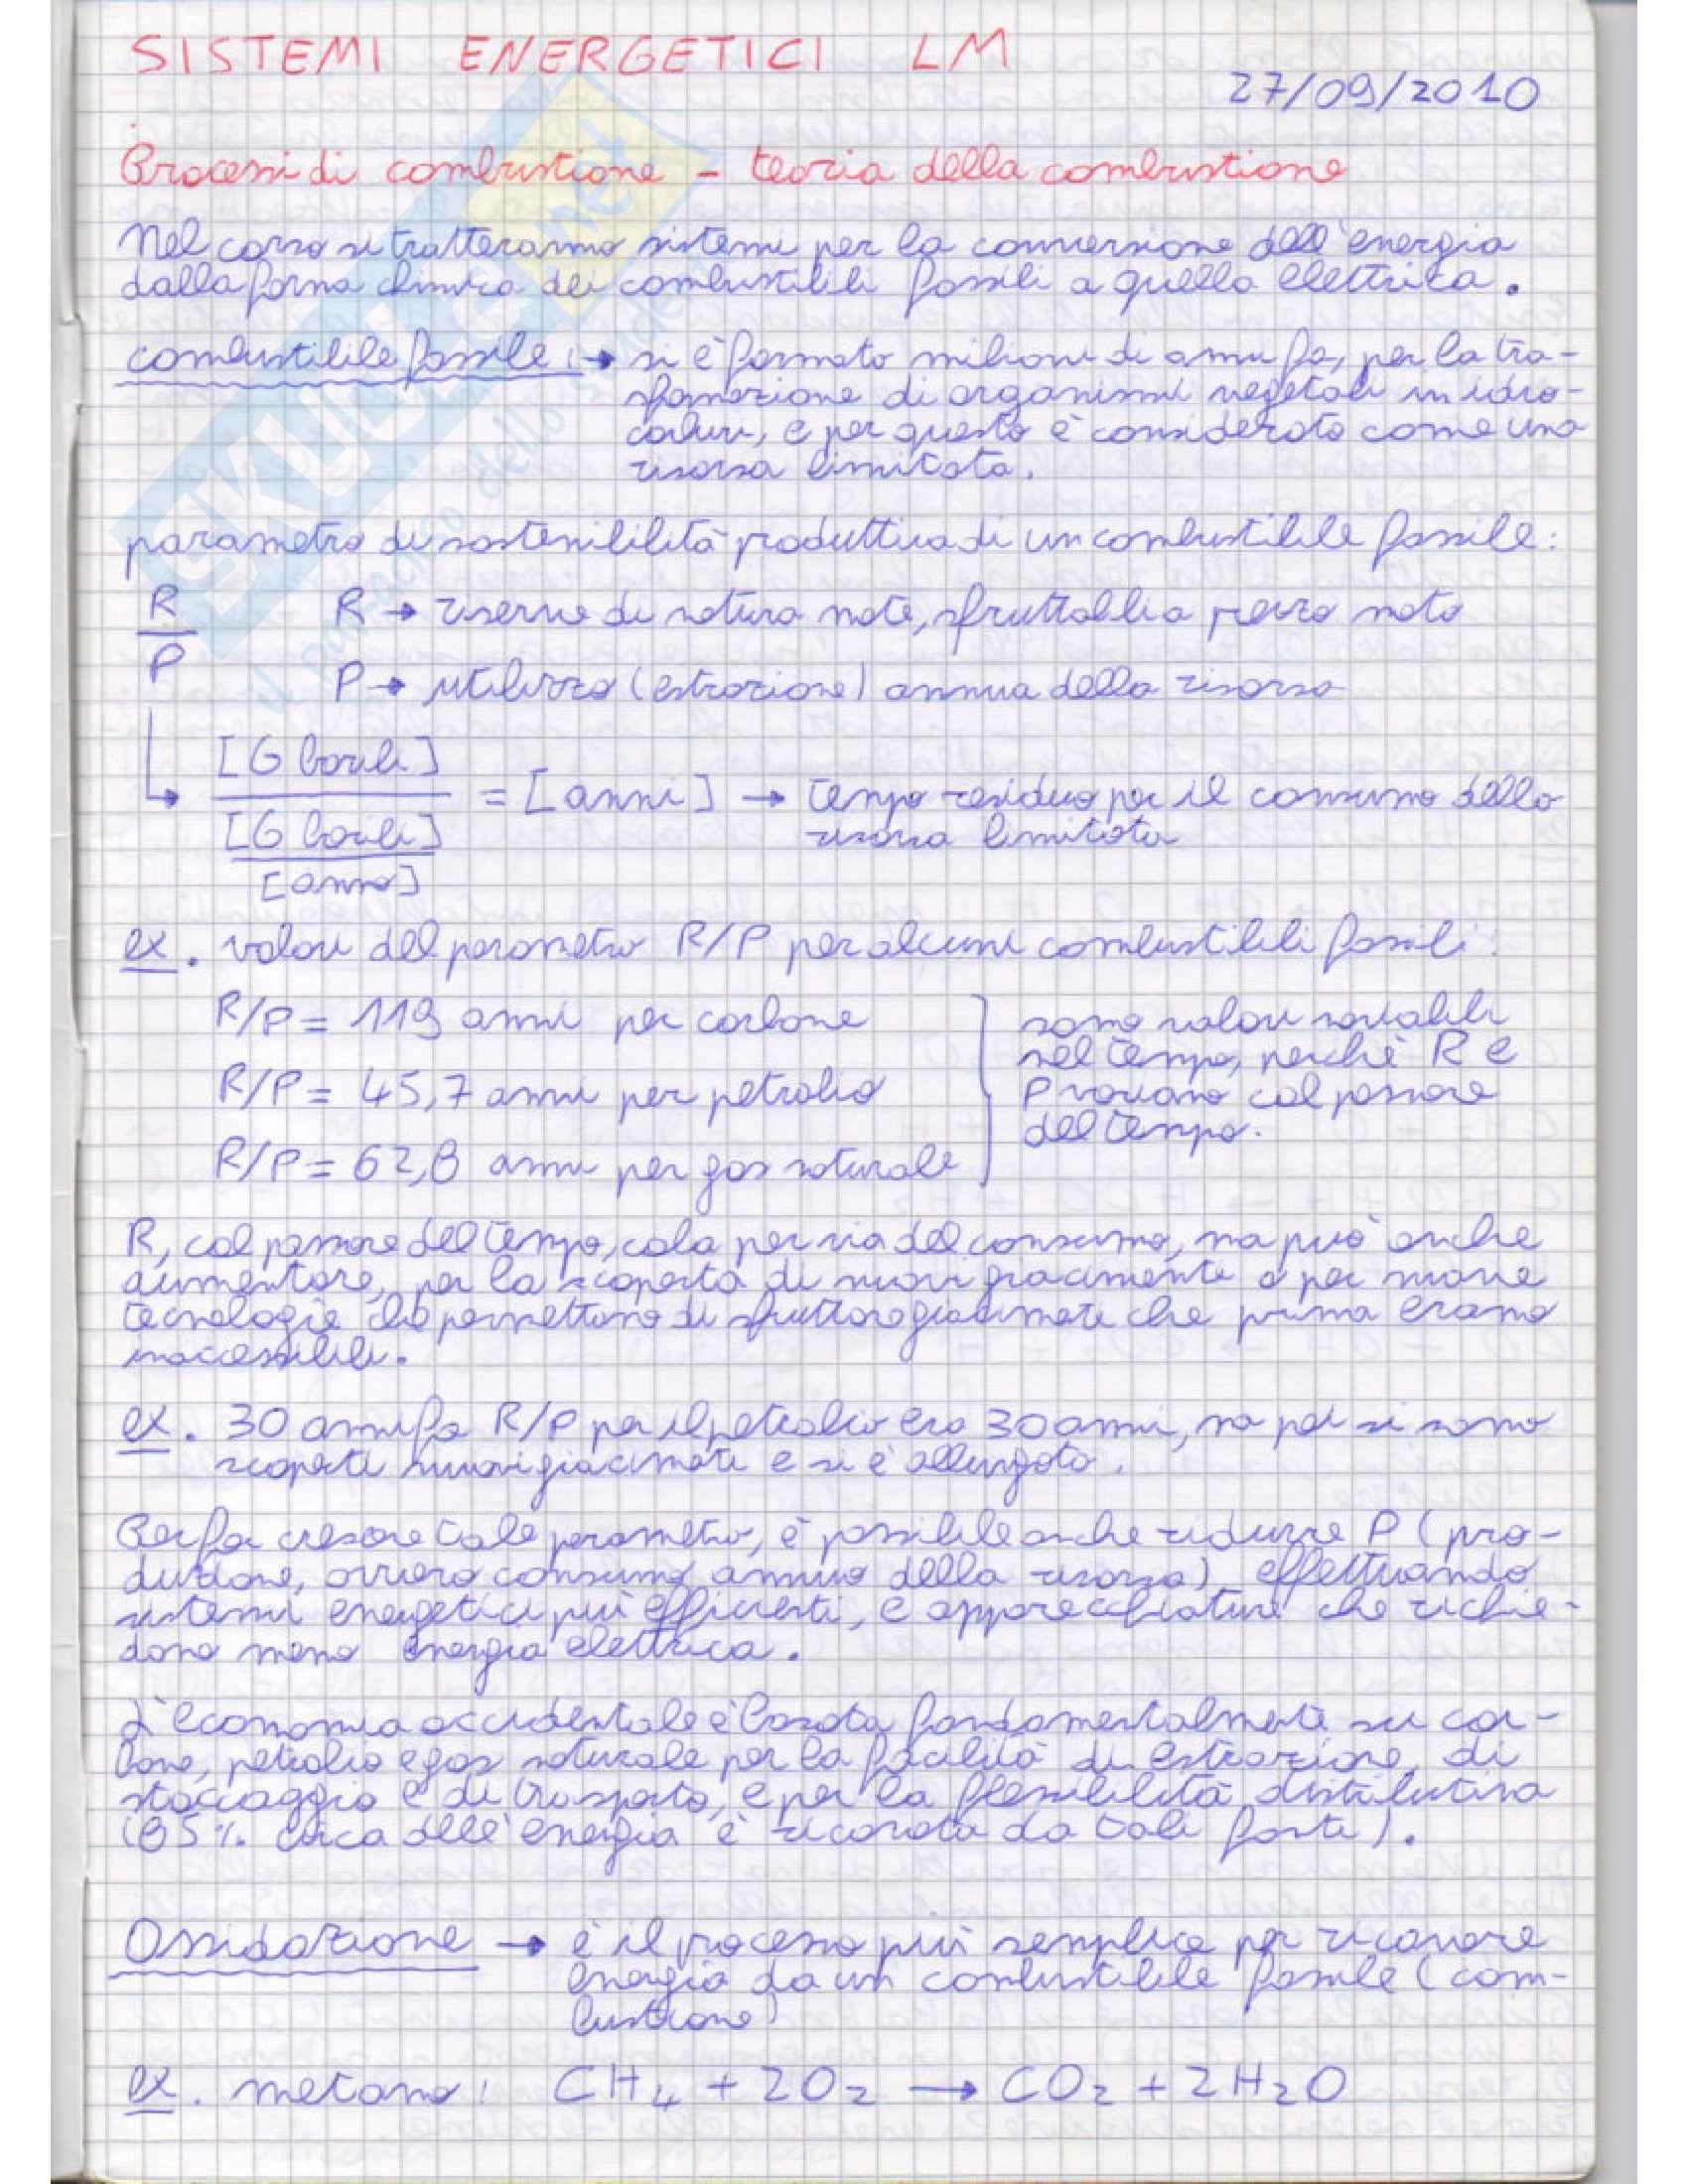 SISTEMI ENERGETICI LM
27/09/2010
Processi di combustione - teoria della combustione
Nel corso si tratteranno sistemi per la conversione dell'energia
dalla forma chimica dei combustibili fossili a quella elettrica.
combustibile fossile: → si è formato milioni di anni fa, per la tra-
sformazione di organismi vegetali in idro-
carburi, e per questo è considerato come una
risorsa limitata.
parametro di sostenibilità produttiva di un combustibile fossile:
R/P
R → riserve di natura note, sfruttabili a prezzo noto
P → utilizzo (estrazione) annua della risorsa
[G barili] / ([G barili] / [anno]) = [anni] → tempo residuo per il consumo della
risorsa limitata
ex. valori del parametro R/P per alcuni combustibili fossili:
R/P = 119 anni per carbone
R/P = 45,7 anni per petrolio
R/P = 62,8 anni per gas naturale
sono valori variabili
nel tempo, perchè R e
P variano col passare
del tempo.
R, col passare del tempo, cala per via del consumo, ma può anche
aumentare, per la scoperta di nuovi giacimenti o per nuove
tecnologie che permettono di sfruttare giacimenti che prima erano
inaccessibili.
ex. 30 anni fa R/P per il petrolio era 30 anni, ma poi si sono
scoperti nuovi giacimenti e si è allungato.
Per far crescere tale parametro, è possibile anche ridurre P (pro-
duzione, ovvero consumo annuo della risorsa) effettuando
sistemi energetici più efficienti, e apparecchiature che richie-
dono meno energia elettrica.
L'economia occidentale è basata fondamentalmente su car-
bone, petrolio e gas naturale per la facilità di estrazione, di
stoccaggio e di trasporto, e per la flessibilità distributiva
(85% circa dell'energia è ricavata da tali fonti).
Ossidazione → è il processo più semplice per ricavare
energia da un combustibile fossile (com-
bustione)
ex. metano: CH₄ + 2O₂ → CO₂ + 2H₂O
SKUOLA.net
il paradiso dello studente